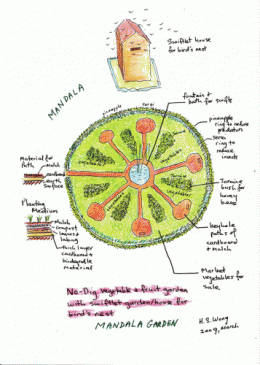 Swiftlet house
for bird's nest
MANDALA
fountain +
bath for swifts
pineapple
serai
pineapple
ring to reduce
predators
serai
ring to
reduce
insects
Material for
Path
mulch
cardboard
earth
surface
vegetables
bush for
honey
bees
Planting
Medium
Mulch
compost
layer
thick layer
cardboard +
biodegradable
material
keyhole
paths of
cardboard
+ mulch
Market
vegetables for
sale
No-Dig vegetable + fruit garden
with swiftlet garden house for
bird's nest
MANDALA GARDEN
H.S. Wong
2009, march